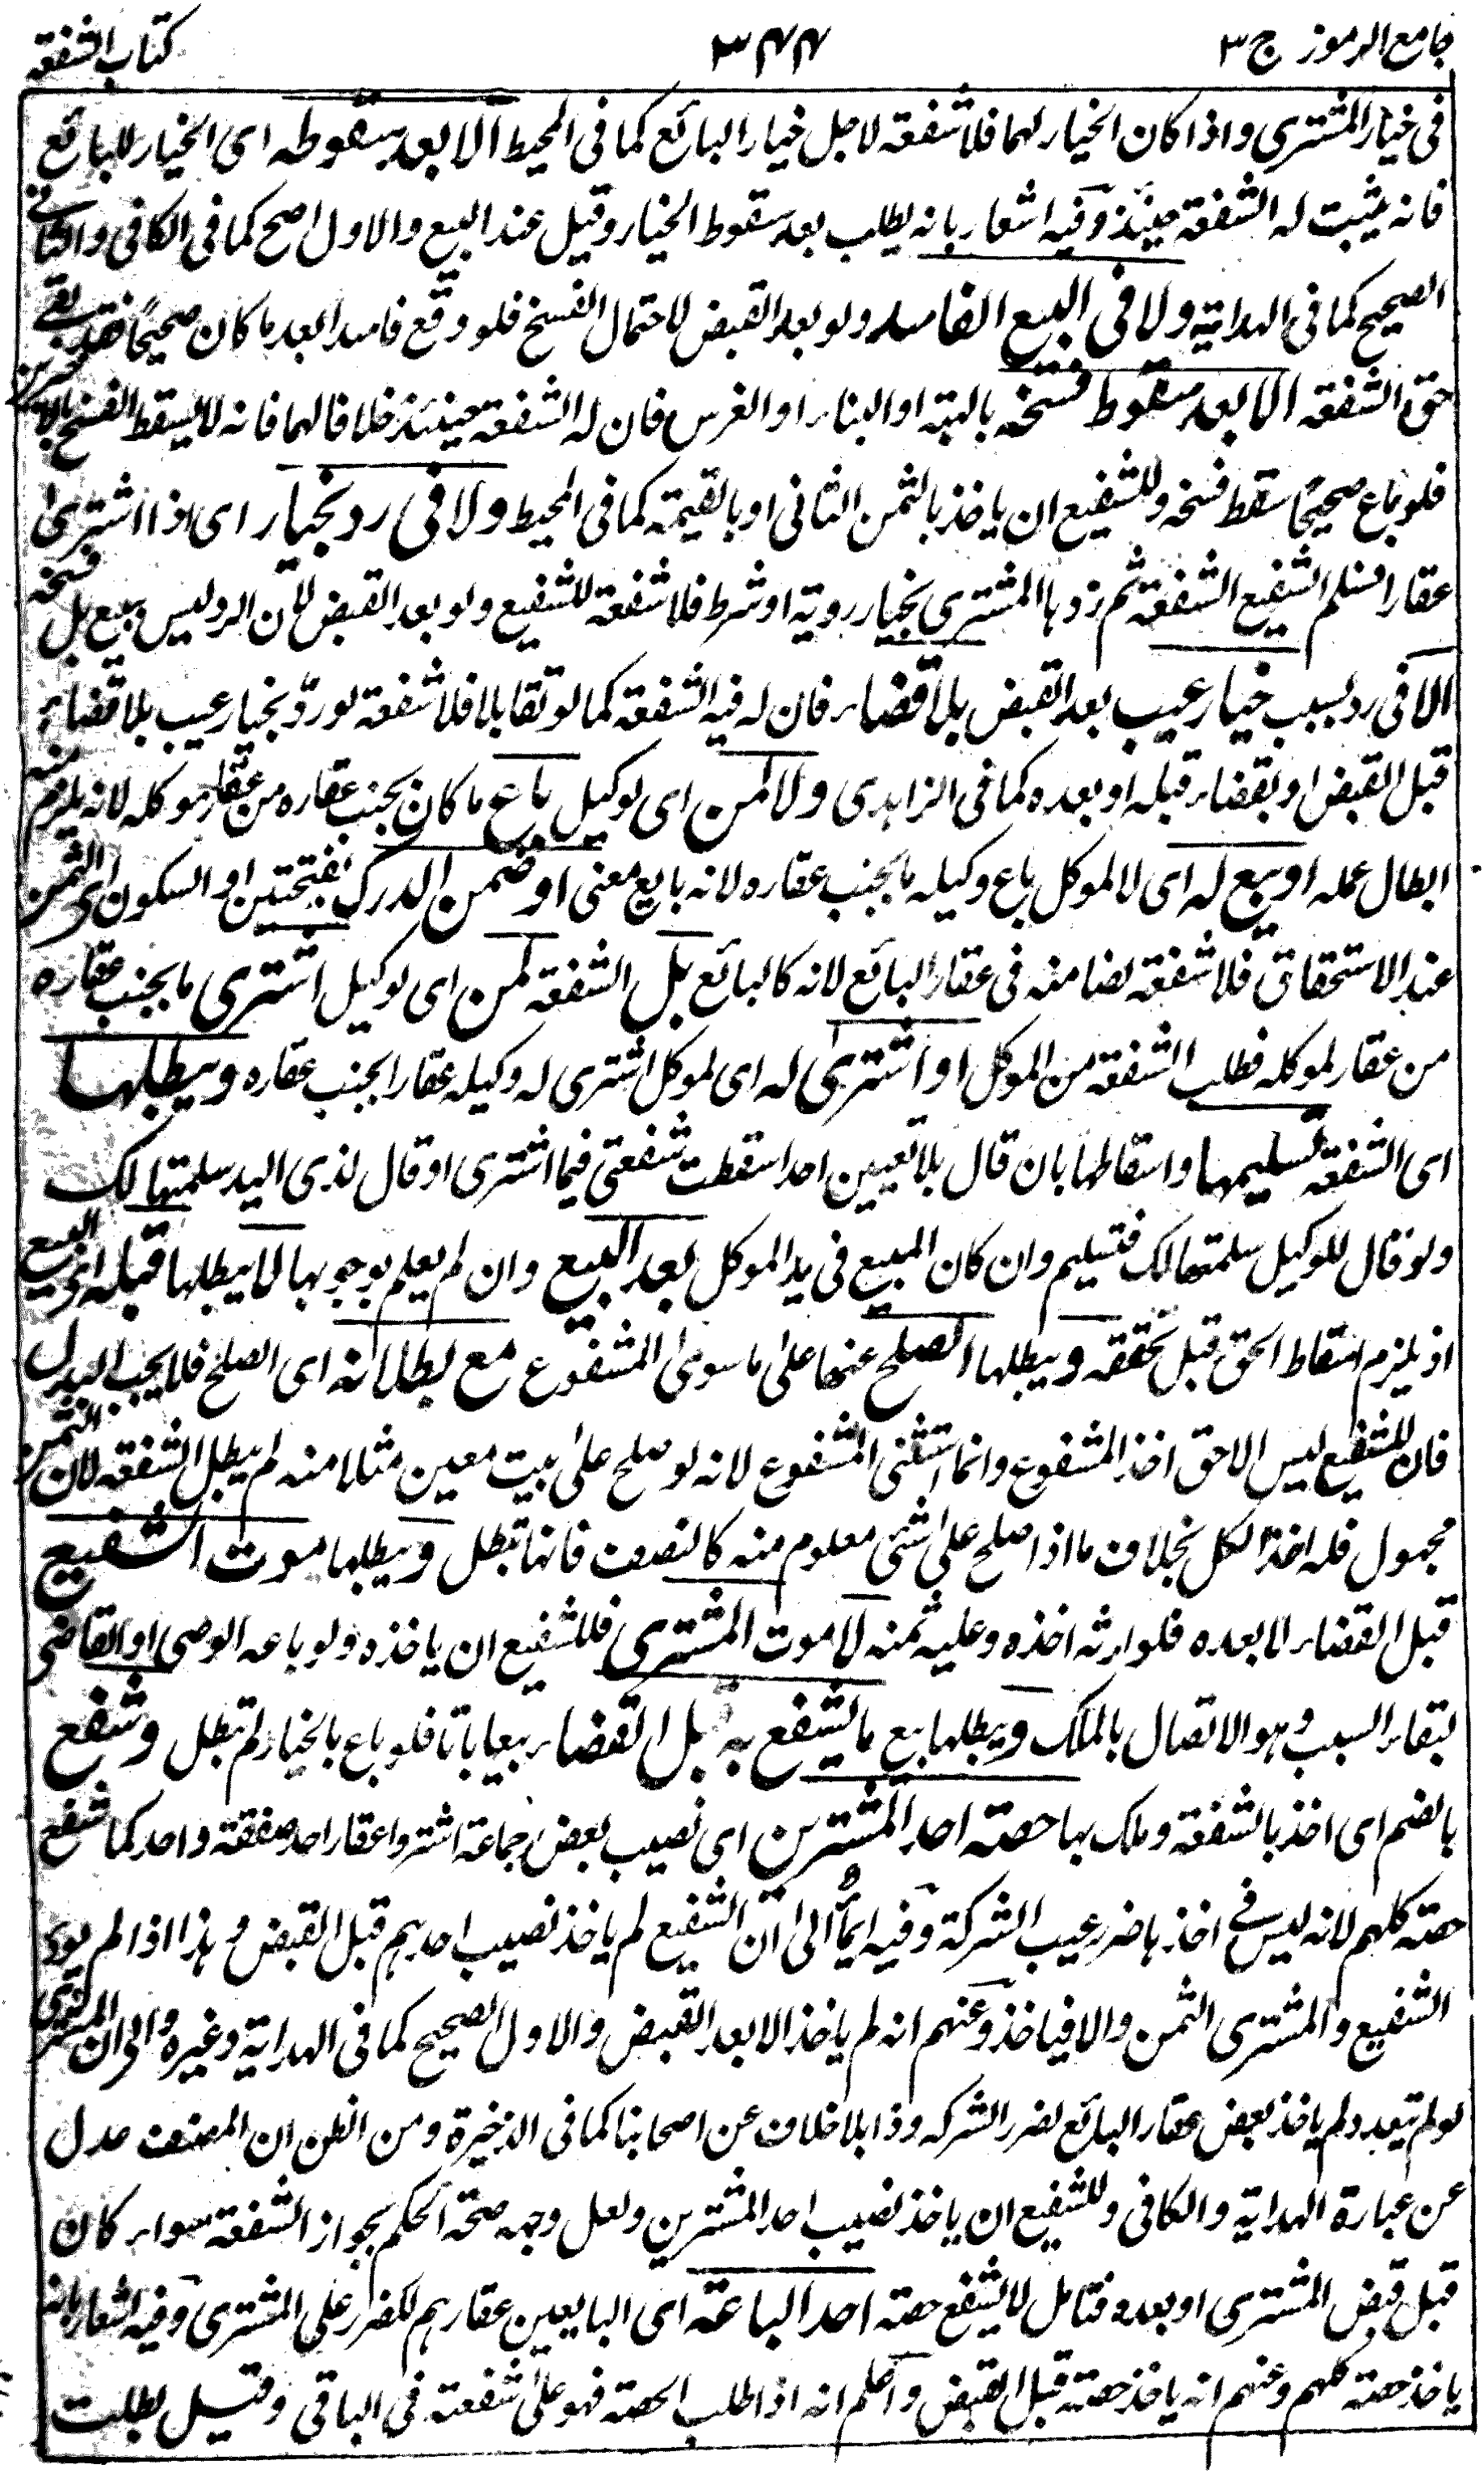 جامع الرموز ج ٣
٣٤٤
كتاب الشفعة
فى خيار المشترى واذا كان الخيار لهما فلا شفعة لاجل خيار البائع كما فى المحيط الا بعد سقوطه اى الخيار للبائع
فانه يثبت له الشفعة حينئذ وفيه اشعار بانه يطلب بعد سقوط الخيار وقيل عند البيع والاول اصح كما فى الكافى والثانى
الصحيح كما فى الهداية ولا فى البيع الفاسد ولو بعد القبض لاحتمال الفسخ فلو وقع فاسدا بعد ما كان صحيحًا فقد بقى
حق الشفعة الا بعد سقوط فسخه بالهبة او البناء او الغرس فان له الشفعة حينئذ خلافا لهما فانه لا يسقط الفسخ بالاخيرين
فلو باع صحيحًا سقط فسخه وللشفيع ان ياخذ بالثمن الثانى او بالقيمة كما فى المحيط ولا فى رد بخيار اى اذا اشترى
عقارا فسلم الشفيع الشفعة ثم ردها المشترى بخيار روية او شرط فلا شفعة للشفيع ولو بعد القبض لان الرد ليس ببيع بل فسخه
الا فى رد بسبب خيار عيب بعد القبض بلا قضاء فان له فيه الشفعة كما لو تقايلا فلا شفعة لو ردّ بخيار عيب بلا قضاء
قبل القبض او بقضاء قبله او بعده كما فى الزاهدى ولا لمن اى لوكيل باع ما كان بجنب عقاره من عقار موكله لانه يلزم منه
ابطال عمله او بيع له اى لا لموكل باع وكيله ما بجنب عقاره لانه بايع معنى او ضمن الدرك بفتحتين او السكون اى الثمن
عند الاستحقاق فلا شفعة لضامنه فى عقار البائع لانه كالبائع بل الشفعة لمن اى لوكيل اشترى ما بجنب عقاره
من عقار لموكله فطلب الشفعة من الموكل او اشترى له اى لموكل اشترى له وكيله عقارا بجنب عقاره ويبطلها
اى الشفعة تسليمها واسقاطها بان قال بلا تعيين احد اسقطت شفعتى فيما اشترى او قال لذى اليد سلمتها لك
ولو قال للوكيل سلمتها لك فتسليم وان كان المبيع فى يد الموكل بعد البيع وان لم يعلم بوجوبها لا يبطلها قبله اى البيع
اذ يلزم اسقاط الحق قبل تحققه ويبطلها الصلح عنها على ما سوى المشفوع مع بطلانه اى الصلح فلا يجب البدل
فان للشفيع ليس الا حق اخذ المشفوع وانما استثنى المشفوع لانه لو صلح على بيت معين مثلا منه لم يبطل الشفعة لان الثمن
مجهول فله اخذ الكل بخلاف ما اذا صلح على شئ معلوم منه كالنصف فانها تبطل ويبطلها موت الشفيع
قبل القضاء لا بعده فلوارثه اخذه وعليه ثمنه لا موت المشترى فللشفيع ان ياخذه ولو باعه الوصى او القاضى
لبقاء السبب وهو الاتصال بالملك ويبطلها بيع ما يشفع به قبل القضاء بيعا باتا فلو باع بالخيار لم تبطل وشفع
بالضم اى اخذ بالشفعة وملك بها حصة احد المشترين اى نصيب بعض جماعة اشتروا عقارا حد صفقة واحد كما شفع
حصة كلهم لانه ليس فى اخذها ضرر عيب الشركة وفيه ايماء الى ان الشفيع لم ياخذ نصيب احدهم قبل القبض وهذا اذا لم يود
الشفيع والمشترى الثمن والا فياخذ وعنهم انه لم ياخذ الا بعد القبض والاول الصحيح كما فى الهداية وغيره والى ان المشترى
لو لم يتعدد لم ياخذ بعض عقار البائع لضرر الشركه وذا بلا خلاف عن اصحابنا كما فى الذخيرة ومن الظن ان المصنف عدل
عن عبارة الهداية والكافى وللشفيع ان ياخذ نصيب احد المشترين ولعل وجهه صحة الحكم بجواز الشفعة سواء كان
قبل قبض المشترى او بعده فتامل لا يشفع حصة احد الباعة اى البايعين عقارهم للضرر على المشترى وفيه اشعار بانه
ياخذ حصة كلهم وعنهم انه ياخذ حصته قبل القبض واعلم انه اذا طلب الحصة فهو على شفعته فى الباقى وقيل بطلت